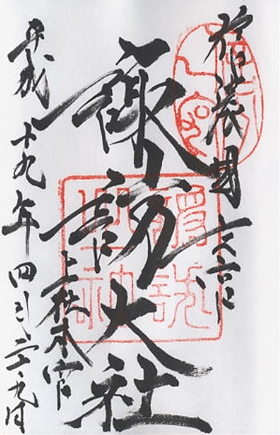 信濃國一之宮
諏訪大社
上社本宮
平成十九年四月二十九日